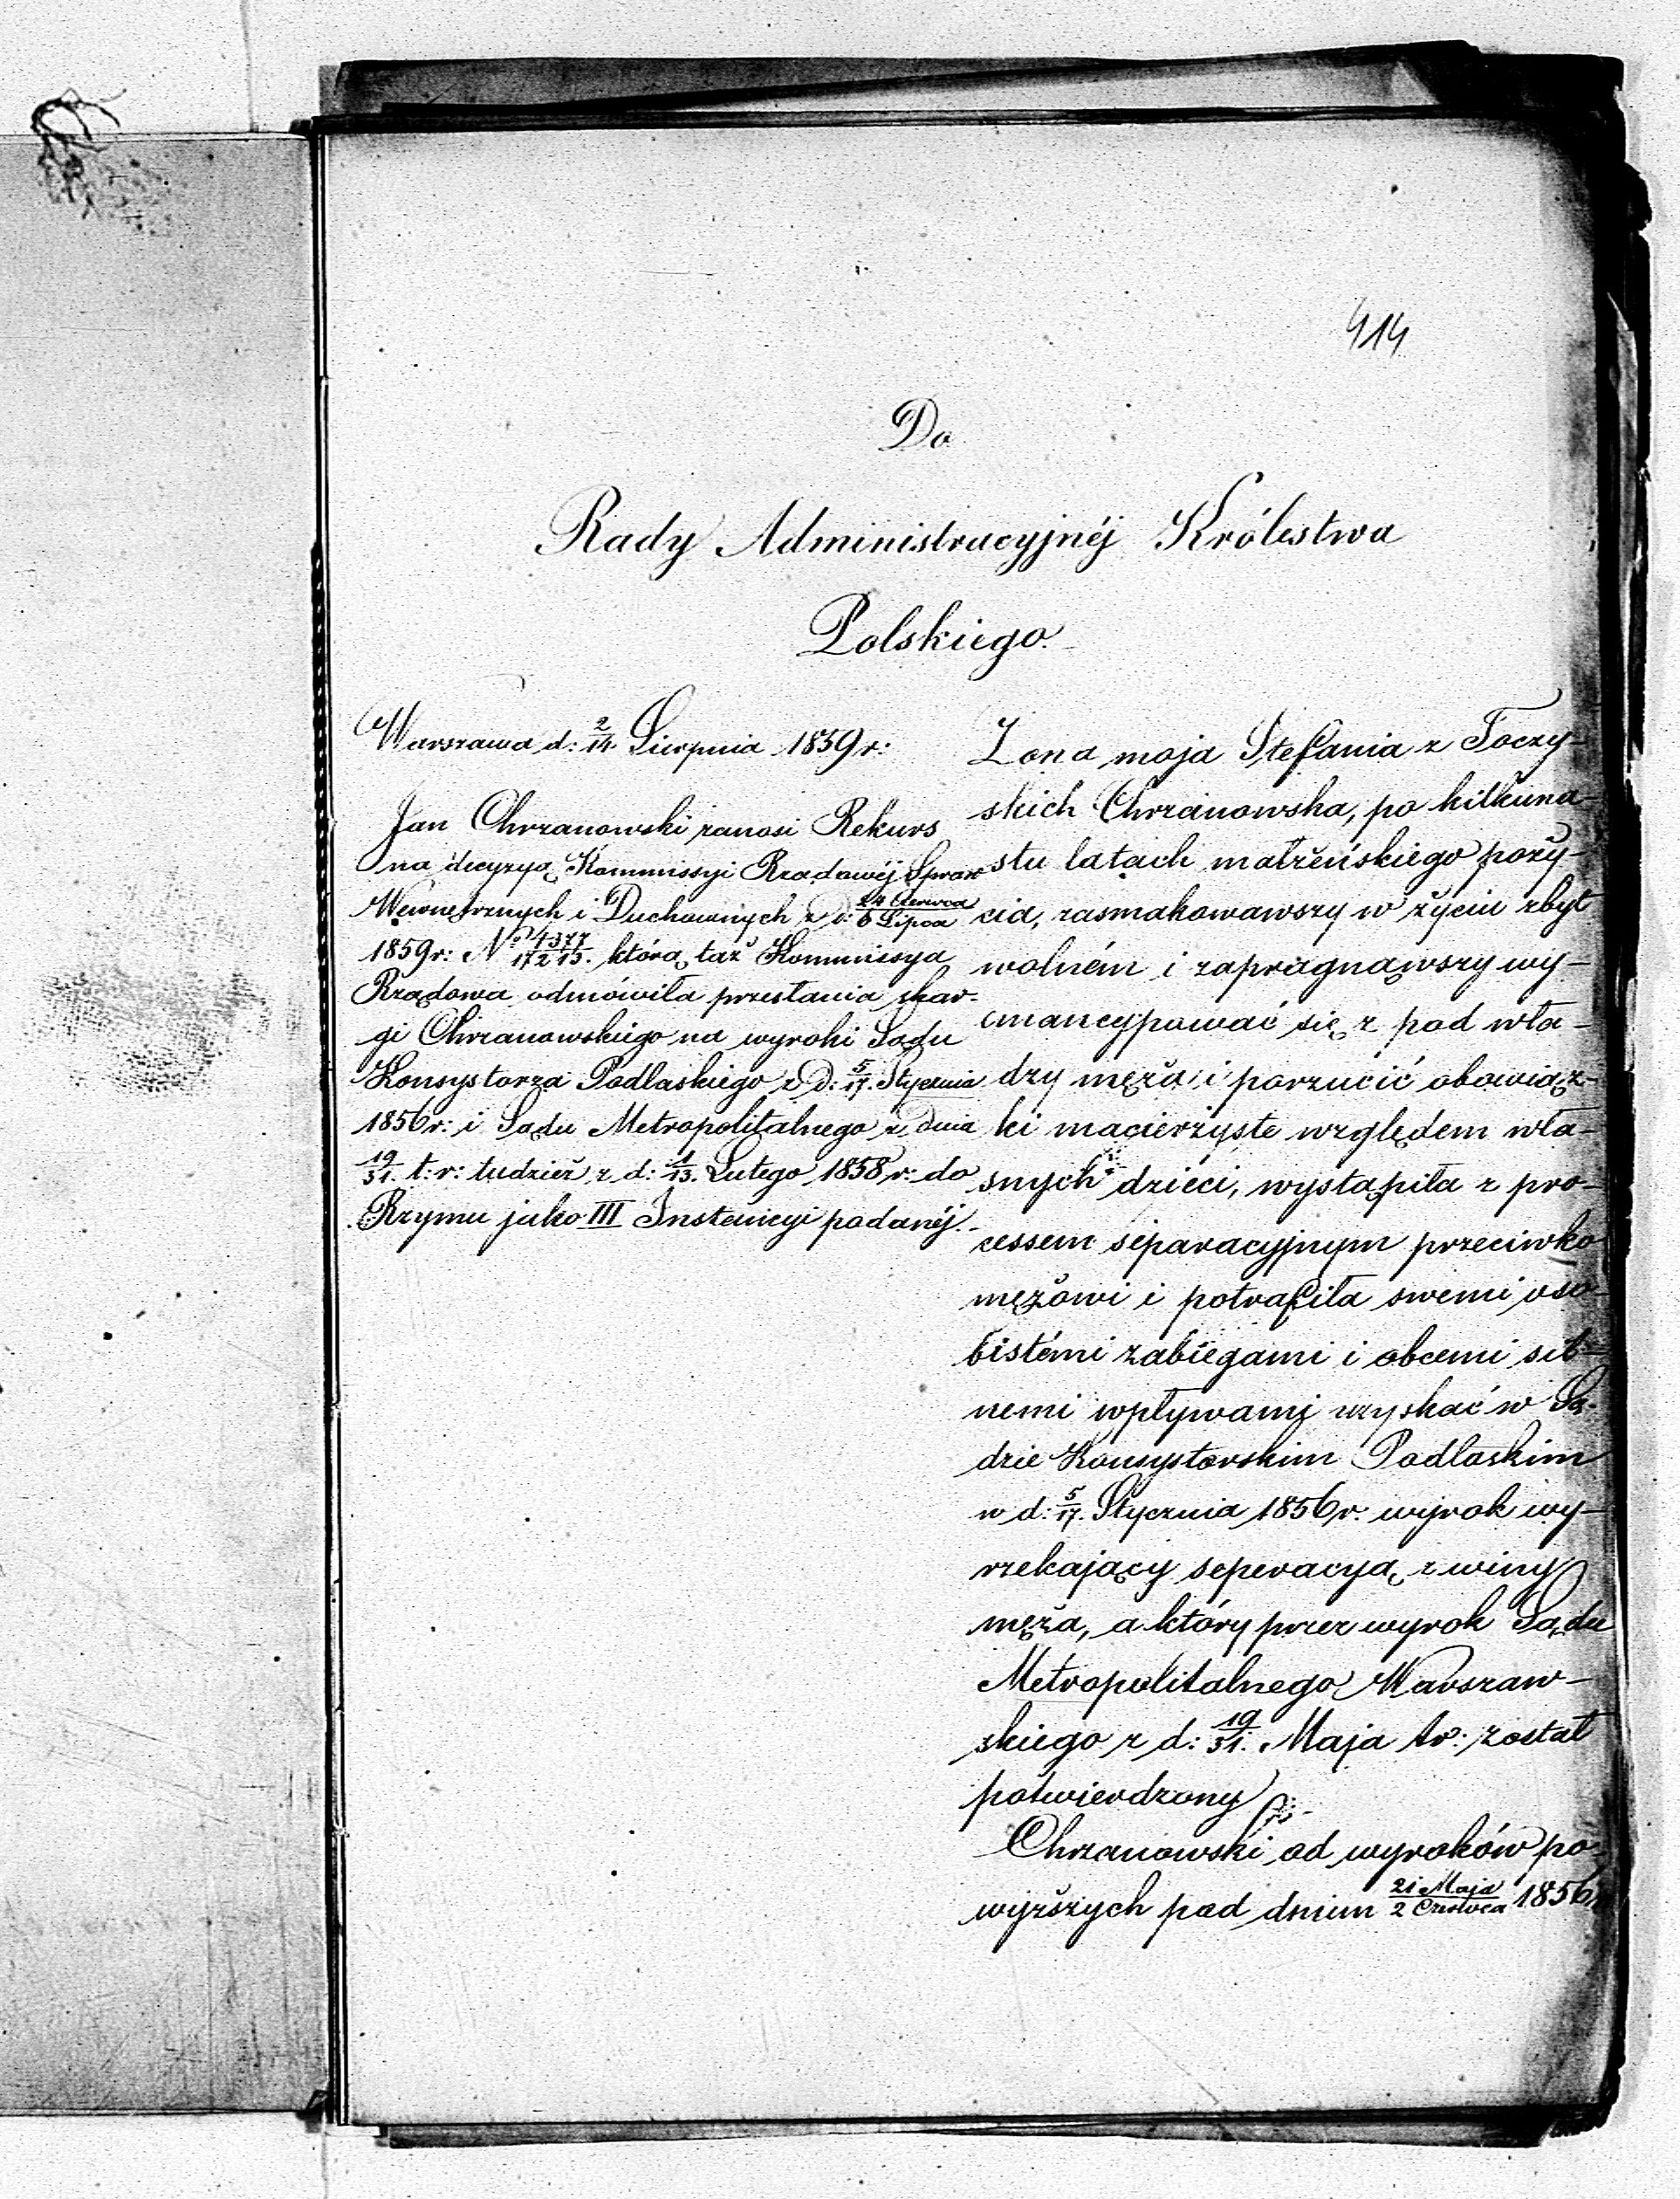 414
Do
Rady Administracyjnéj Królestwa
Polskiego.
Warszawa d: 2/14 Sierpnia 1859 r:
Jan Chrzanowski zanosi Rekurs
na decyzyą Kommissyi Rządowéj Spraw
Wewnętrznych i Duchownych z d: 24 Czerwca/6 Lipca
1859 r: No 4377/17213. którą taż Kommissya
Rządowa odmówiła przesłania skar-
gi Chrzanowskiego na wyroki Sądu
Konsystorza Podlaskiego z d: 5/17. Stycznia
1856 r: i Sądu Metropolitalnego z dnia
19/31. t: r: tudzież z d: 1/13. Lutego 1858 r: do
Rzymu jako III Instancyi podanéj.
Żona moja Stefania z Toczy-
skich Chrzanowska, po kilkuna-
stu latach małżeńskiego poży-
cia, zasmakowawszy w życiu zbyt
wolném i zapragnąwszy wy-
emancypować się z pod wła-
dzy męża i porzucić obowiąz-
ki macierzyste względem wła-
snych dzieci, wystąpiła z pro-
cessem separacyjnym przeciwko
mężowi i potrafiła swemi oso-
bistémi zabiegami i obcemi sil-
nemi wpływami uzyskać w Są-
dzie Konsystorskim Podlaskim
w d: 5/17. Stycznia 1856 r: wyrok wy-
rzekający seperacyą z winy
męża, a który przez wyrok Sądu
Metropolitalnego Warszaw-
skiego z d: 19/31. Maja tr: został
potwierdzony
Chrzanowski od wyroków po-
wyższych pod dniem 21 Maja/2 Czerwca 1856 r